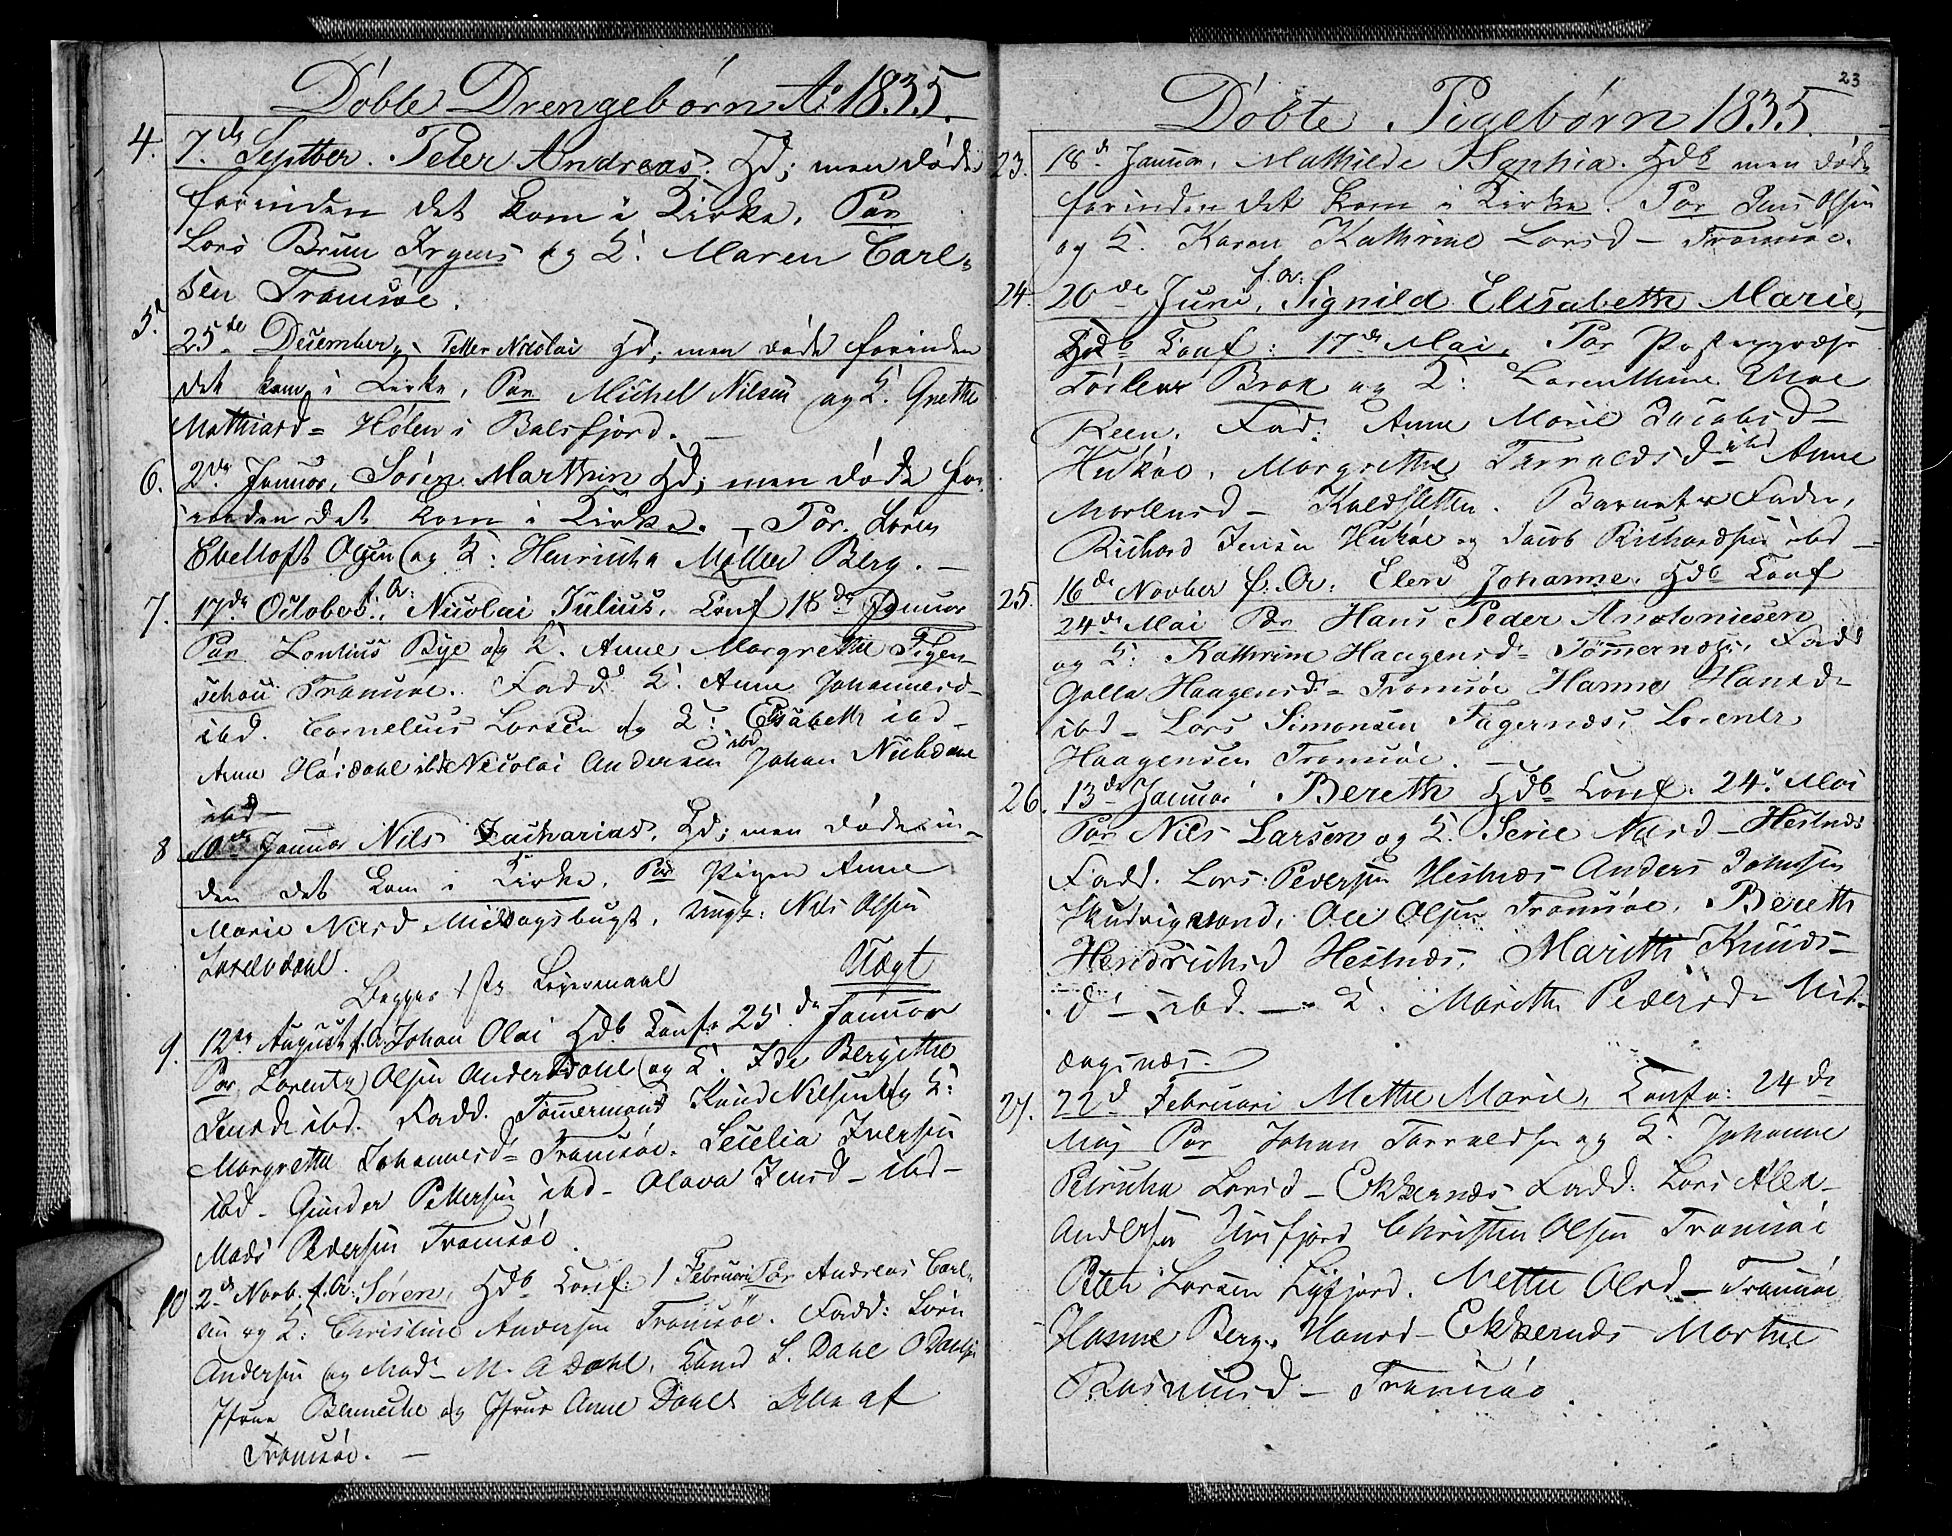 Døbte Drengebørn Ao 1835.
4. 7.de Septber. Peter Andreas. Hd; men døde
forinden det kom i Kirke, Par
Lars Brun Irgens og K. Maren Carl-
sen Tromsøe.
5. 25de December, Petter Nicolai Hd; men døde forinden
det kom i Kirke, Par Michel Nilsen og K. Grethe
Mathiasd= Hølen i Balsfjord. —
6. 2de Januar, Søren Marthin Hd; men døde for-
inden det kom i Kirke. — Par.
Ebeltoft Olsen og K: Henricha Møller Berg. —
7. 17de October f. A:, Nicolai Julius, Conf 18de Januar
Par Bye og K. Anne Margrethe Figen-
schou Tromsøe. Fadd K. Anne Johannesd-
ibd. Cornelius Larsen og K: Elisabeth ibd-
Anne Høidahl ibd Nicolai Andersen ibd Johan
ibd—
8 10de Januar Nils Zacharias, Hd; men døde in-
den det kom i Kirke. Par Pigen Anne
Marie Nilsd Middagsbugt, Ungk: Nils Olsen
Begges 1ste Leiermaal Uægt
9. 12te August f. A. Johan Olai Hdb Conf. 25.de Januar
Par Lorentz Olsen Andersdahl og K. Ide Bergithe
Jensd ibd. Fadd. Tømmermand Knud Nilsen og K:
Margrethe Johannesd= Tromsøe. Cecelia Iversen
ibd- Gunder Pettersen ibd- Olava Jensd- ibd-
Mads Pedersen Tromsøe.
10 2de Novb. f. A: Søren, Hdb Conf: 1 Februari Par Andreas Carl-
sen og K: Christine Andersen Tromsøe. Fadd: Sørn
Andersen og Mad- M. A Dahl, Knud L. Dahl
Jfrue og Jfrue Anne Dahl Alle af
Tromsøe. —
23
Døbte Pigebørn 1835.
23. 18de Januar, Mathilde Sophia. Hdb men døde
forinden det kom i Kirke. Par Jens Olsen
og K. Karen Kathrine Larsd- Tromsøe.
24. 20de Juni f. A:, Signild Elisabeth Marie,
Hdb Conf: 17de Mai, Par
Brok og K: Lorenthine Moe
Keen. Fad: Anne Marie Jacobsd-
Margrethe Tarraldsd- ibd Anne
Mortensd- Kaldsletten. Barnets Fader,
Richard Jensen og Jacob Richardsen ibd-
25. 16de Novber f: A: Elen Johanne, Hdb Conf
24de Mai Par Hans Peder Antoniesen
og K: Kathrine Haagensd= Tømmernæs, Fadd
Haagensd= Tromsøe Hanna Hansd-
ibd- Lars Simonsen Fagernæs, Lorents
Haagensen Tromsøe. —
26. 13de Januar Bereth Hdb Conf. 24de Mai
Par Nils Larsen og K. Serie Nilsd- Hestnæs
Fadd. Lars Pedersen Hestnæs Anders Johnsen
Ole Olsen Tromsøe, Bereth
Hendrichsd Hestnæs, Marith Knuds-
d- ibd. — K. Marethe Pedersd- Mid-
dagsnæs.
27. 22d Februari Methe Marie, Confo: 24de
Maj Par Johan Tarraldsen og K. Johanne
Petricha Larsd- Ekkernæs Fadd: Lars Alex-
Andersen Ursfjord Christen Olsen Tromsøe
Peter Larsen Lyfjord. Mette Olsd- Tromsøe
Hanne Berg. Hansd- Ekkernæs Marthe
Rasmusd- Tromsøe.